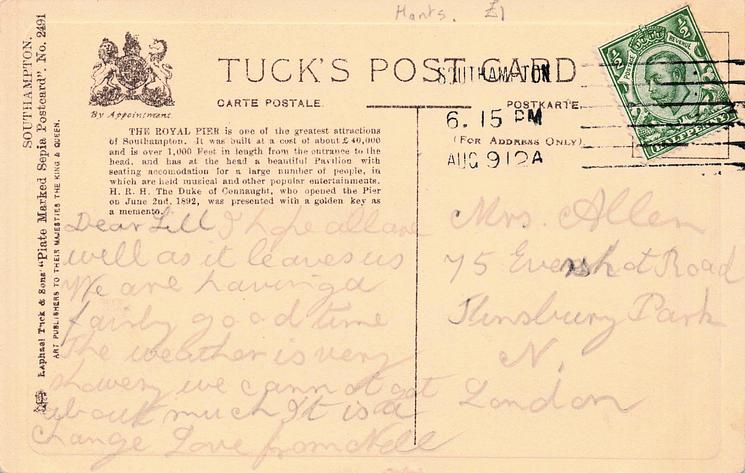 Hants. £1
SOUTHAMPTON.
Raphael Tuck & Sons' "Plate Marked Sepia Postcard". No. 2491
ART PUBLISHERS TO THEIR MAJESTIES THE KING & QUEEN.
By Appointment
TUCK'S POST CARD
CARTE POSTALE.
POSTKARTE.
(FOR ADDRESS ONLY)
THE ROYAL PIER is one of the greatest attractions
of Southampton. It was built at a cost of about £40,000
and is over 1,000 Feet in length from the entrance to the
head, and has at the head a beautiful Pavilion with
seating accomodation for a large number of people, in
which are held musical and other popular entertainments.
H. R. H. The Duke of Connaught, who opened the Pier
on June 2nd, 1892, was presented with a golden key as
a memento.
SOUTHAMPTON
6.15 PM
AUG 9 12A
POSTAGE REVENUE
½ ½
HALFPENNY
Dear Lill I hope all are
well as it leaves us
We are having a
fairly good time
The weather is very
showery we cannot get
about much It is a
change Love from Nell
Mrs. Allen
75 Evershot Road
Finsbury Park
N.
London